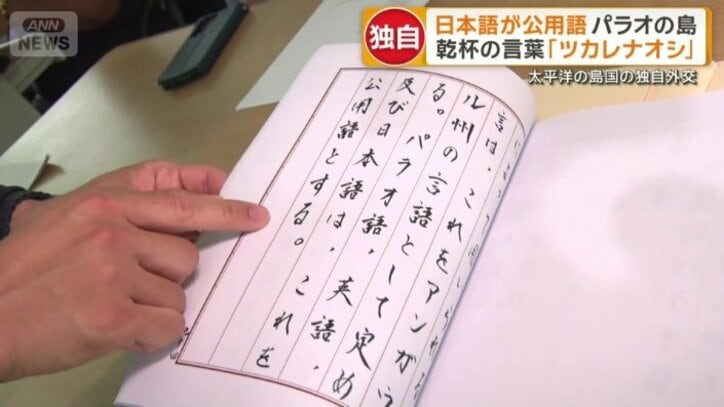 ANN
NEWS
独自
日本語が公用語 パラオの島
乾杯の言葉「ツカレナオシ」
太平洋の島国の独自外交
言は、これをアンガウ
ル州の言語として定め
る。パラオ語、英語、
及び日本語は、これを
公用語とする。